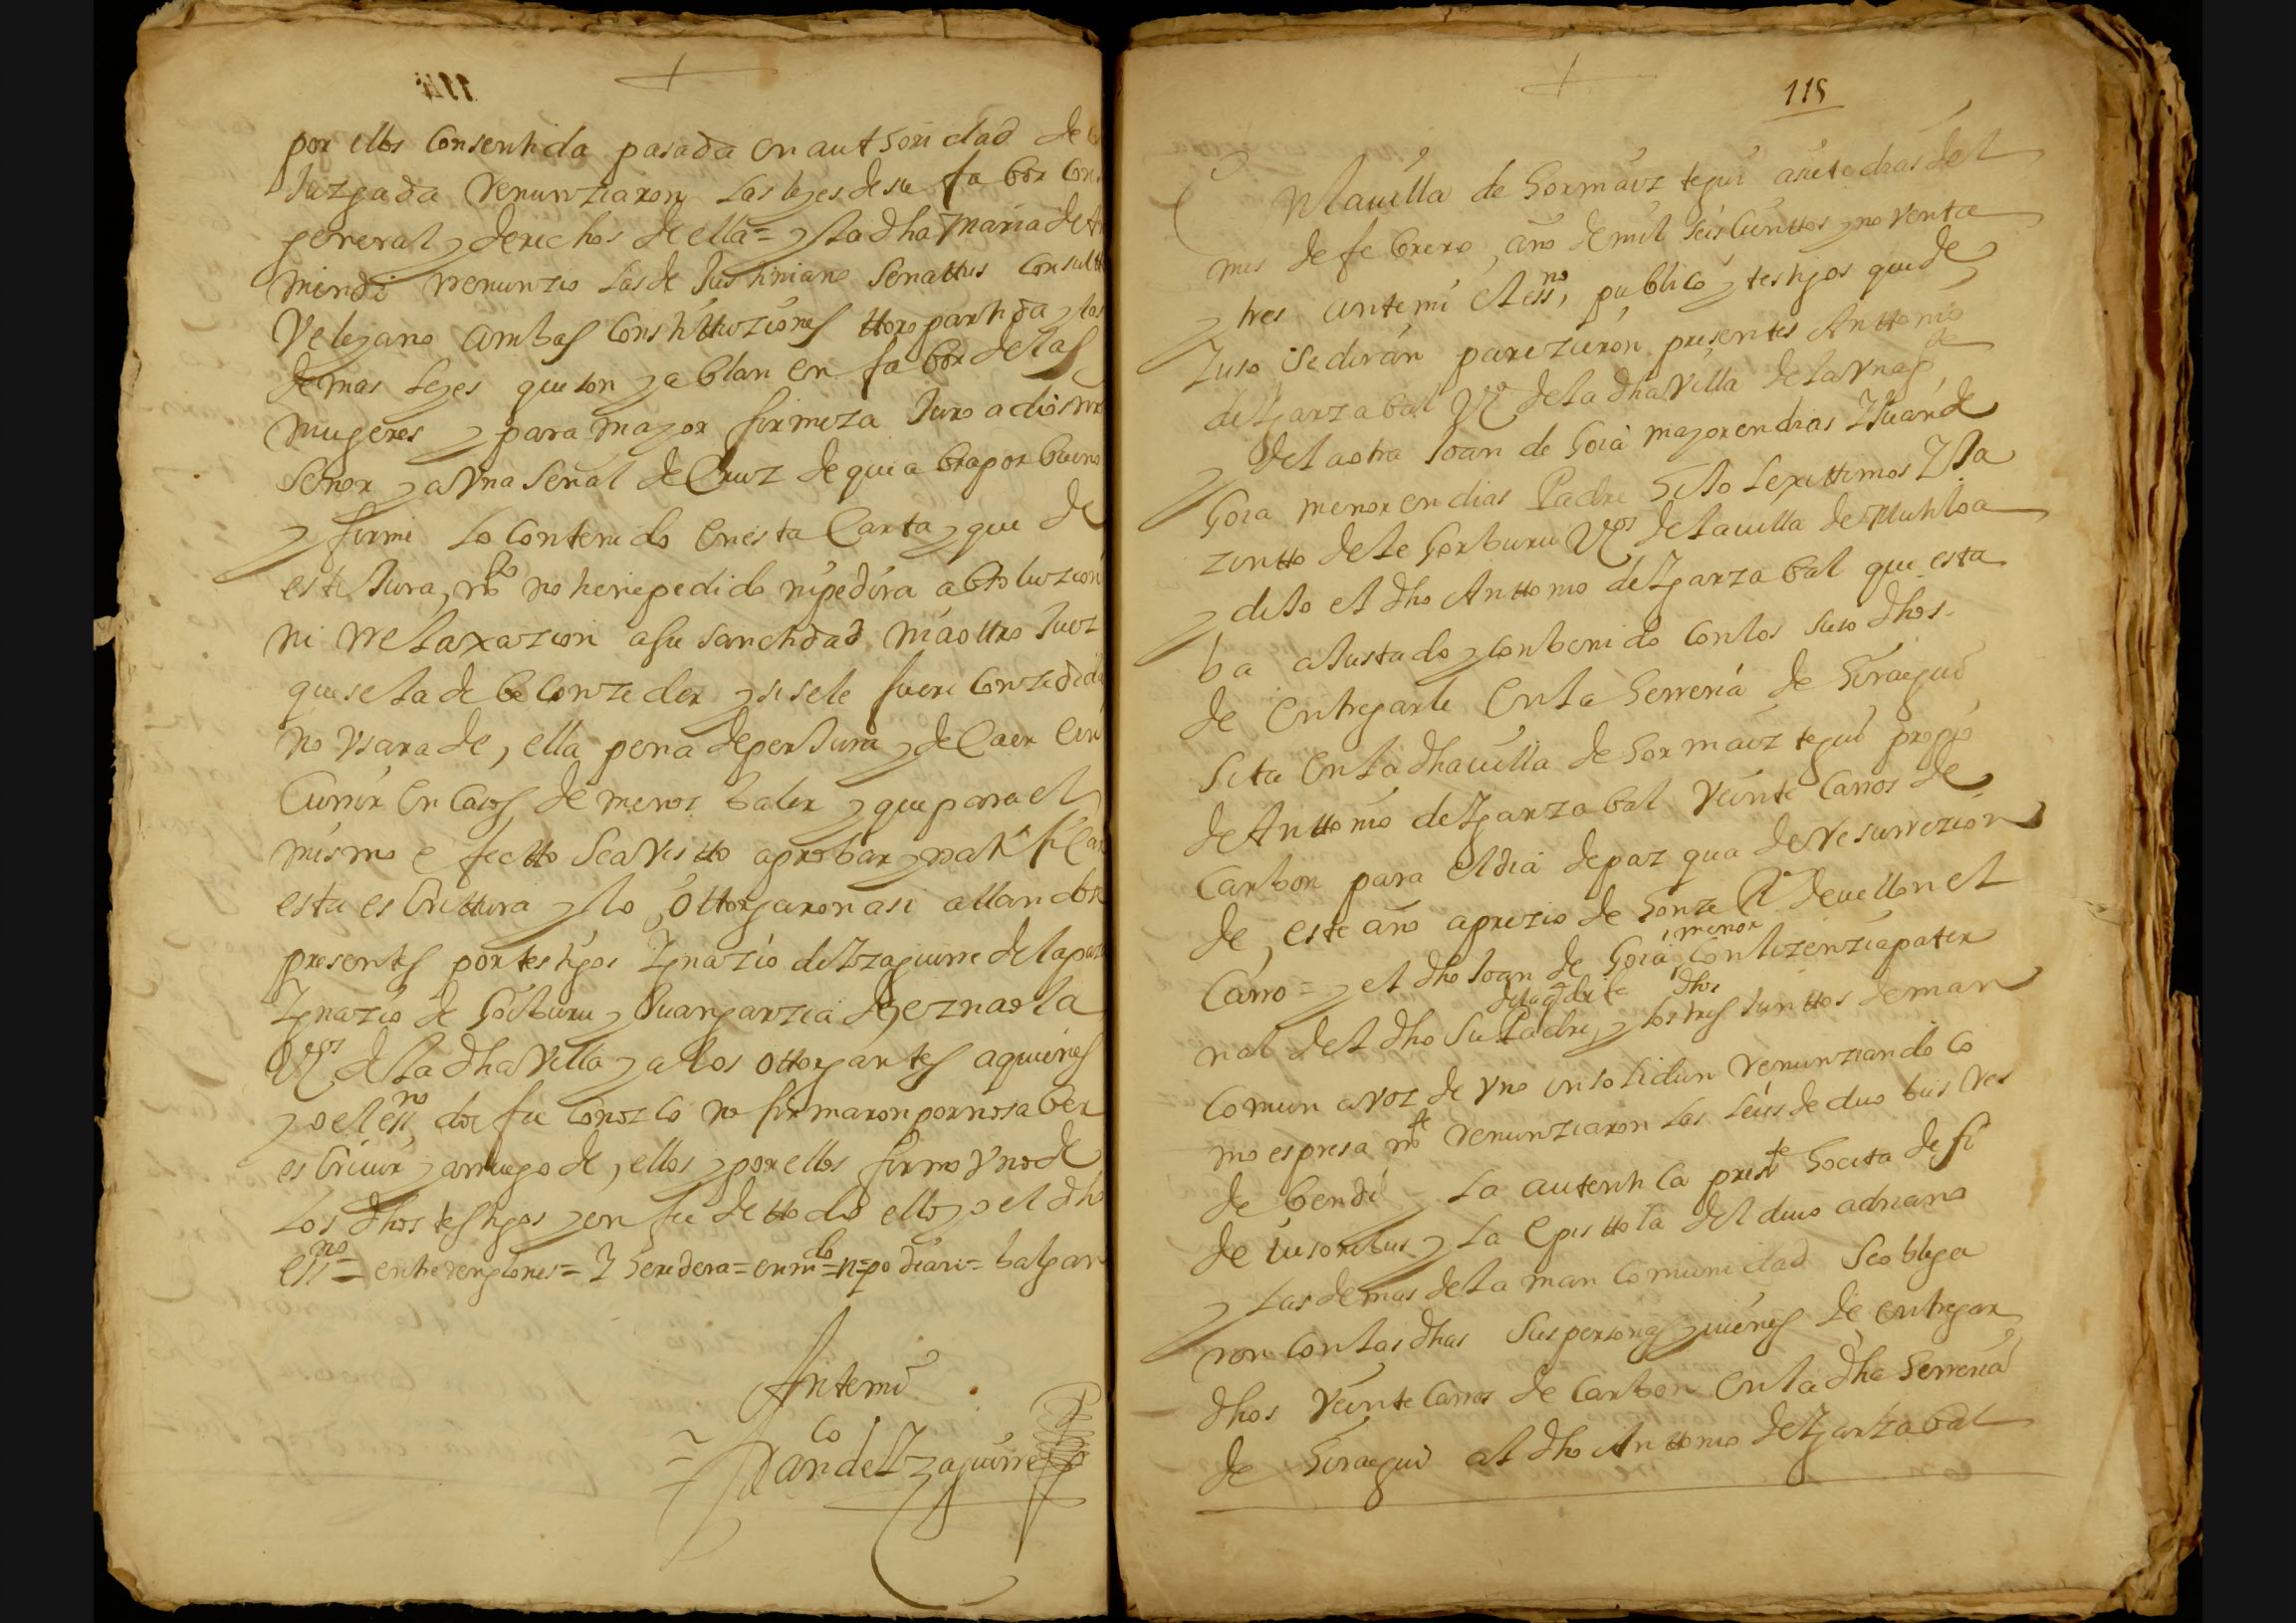 por ellos Consentida pasada en authoridad de
Juzgada Renunziaron las leyes de su fabor Con
general y derechos de ella = y la dha maria de
mendi rrenunzio las de Justiniano Senattus Consultto
Velegano ambas Constittuziones ttoro partida y las
demas leyes que son y ablan en fabor de las
mugeres y para mayor firmeza Juro a dios nro
Señor y a Vna Señal de Cruz de que abra por bueno
y firme lo Contenido en esta Carta y que de
este Jura mto no tiene pedido ni pedira absoluzion
ni rrelaxazion a su santidad ni a ottro Juez
que se la debe Conzeder y si se le fuere Conzedida
no Vsara de, ella pena de perJura y de Caer e in
Currir en Casos de menos baler y que para el
mismo efectto sea Vistto aprobar y rratificar
esta esCrittura y lo ottorgaron asi allandose
presentes por testigos Ygnazio de Yzaguirre de la plaza
Ygnazio de Goiburu y Juan garzia de eznaola
Vos de la dha Villa y a los ottorgantes a quienes
yo el essno doi fee Conozco no firmaron por no saber
esCriuir y a rruego de, ellos y por ellos firmo Vno de
los dhos testigos y en fee de ttodo ello yo el dho
essno = entre renglones = Y heredera = en mdo = n = po diari = balgan
Antemi
Franco de Yzaguirre
115
En la uilla de hormaiztegui a siete dias del
mes de febrero, año de mil seis Cienttos y no Venta
y tres ante mi el essno, publico y testigos que de
Yuso se diran parezieron presentes Anttonio
de Ygarzabal Vo de la dha Villa de la Vna pte
y de la otra Joan de Goia mayor en dias Y Juan de
Goia menor en dias Padre hiJo lexittimos Y Ja
zintto de leGorburu Vos de la uilla de Mutiloa
y diJo el dho Anttonio de Ygarzabal que esta
ba aJustado y Conbenido Con los suso dhos
de Entregarle En la herreria de Giraegui
sita en la dha uilla de hormaiztegui propio
de Anttonio de Ygarzabal Veinte Carros de
Carbon para el dia de pazqua de rresurrezion
de, este año a prezio de honze Rs de uellon el
Carro = y el dho Joan de Goia menor Con lizenzia pater
nal del dho su Padre, y los tres dhos Junttos de man
Comun a voz de Vno insolidun renunziando Co
mo espresa mte renunziaron las leies de duo bus res
de bendi y la autentica preste hocita de fi
de iusoribus y la epis ttola del diuo adriano
y las demas de la man Comunidad se obliga
ron Con las dhas sus personas y uienes de entregar
dhos Veinte Carros de Carbon en la dha herreria
de Giraegui al dho Anttonio de Ygarzabal